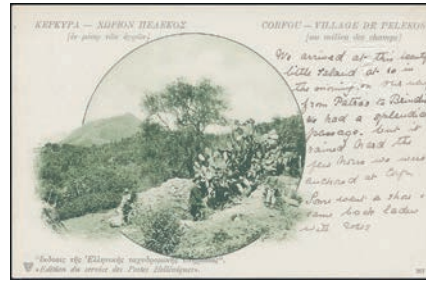 ΚΕΡΚΥΡΑ — ΧΩΡΙΟΝ ΠΕΛΕΚΟΣ
CORFOU — VILLAGE DE PELEKOS
(ἐν μέσῳ τῶν ἀγρῶν)
(au milieu des champs)
We arrived at this
little Island at 10 in
the morning on our way
from Patras to Brindisi
we had a splendid
passage. but it
rained hard the
few hours we were
anchored at Corfu
Some went a shore
came back laden
with
Ἔκδοσις τῆς Ἑλληνικῆς ταχυδρομικῆς
«Edition du service des Postes Helléniques».